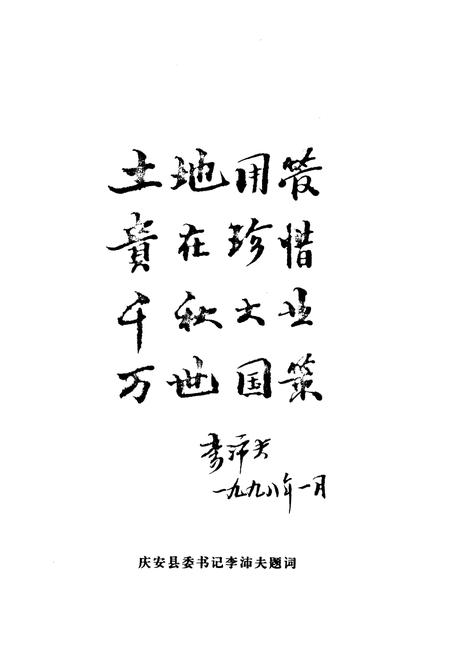 土地用管
贵在珍惜
千秋大业
万世国策
李沛夫
一九九八年一月
庆安县委书记李沛夫题词